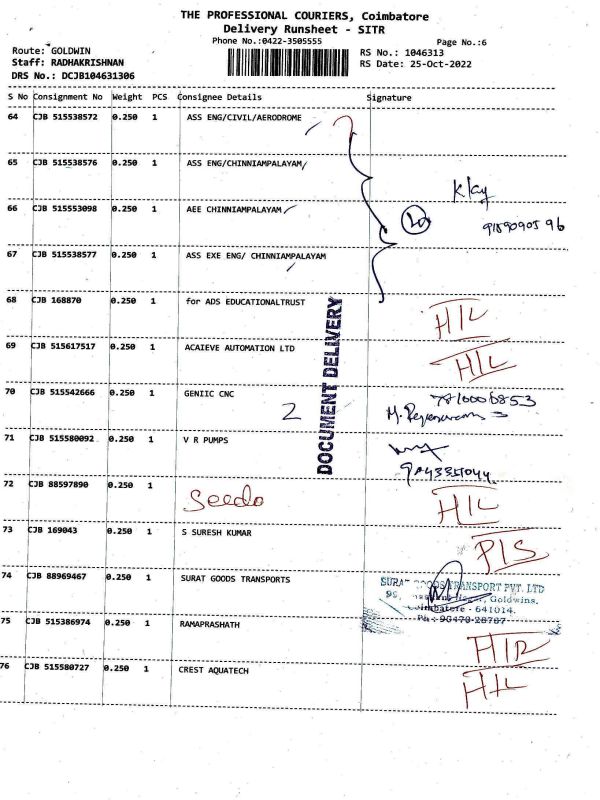 THE PROFESSIONAL COURIERS, Coimbatore
Delivery Runsheet - SITR
Phone No.:0422-3505555 Page No.:6
Route: GOLDWIN RS No.: 1046313
Staff: RADHAKRISHNAN RS Date: 25-Oct-2022
DRS No.: DCJB104631306
S No Consignment No Weight PCS Consignee Details Signature
64 CJB 515538572 0.250 1 ASS ENG/CIVIL/AERODROME
65 CJB 515538576 0.250 1 ASS ENG/CHINNIAMPALAYAM
66 CJB 515553098 0.250 1 AEE CHINNIAMPALAYAM
67 CJB 515538577 0.250 1 ASS EXE ENG/ CHINNIAMPALAYAM
68 CJB 168870 0.250 1 for ADS EDUCATIONALTRUST H/L
DOCUMENT DELIVERY
69 CJB 515617517 0.250 1 ACAIEVE AUTOMATION LTD H/L
70 CJB 515542666 0.250 1 GENIIC CNC 2
71 CJB 515580092 0.250 1 V R PUMPS
72 CJB 88597890 0.250 1 Seedo H/L
73 CJB 169043 0.250 1 S SURESH KUMAR P/S
74 CJB 88969467 0.250 1 SURAT GOODS TRANSPORTS
SURAT GOODS TRANSPORT PVT. LTD
Goldwins,
Coimbatore - 641014.
75 CJB 515386974 0.250 1 RAMAPRASHATH H/R
76 CJB 515580727 0.250 1 CREST AQUATECH H/L